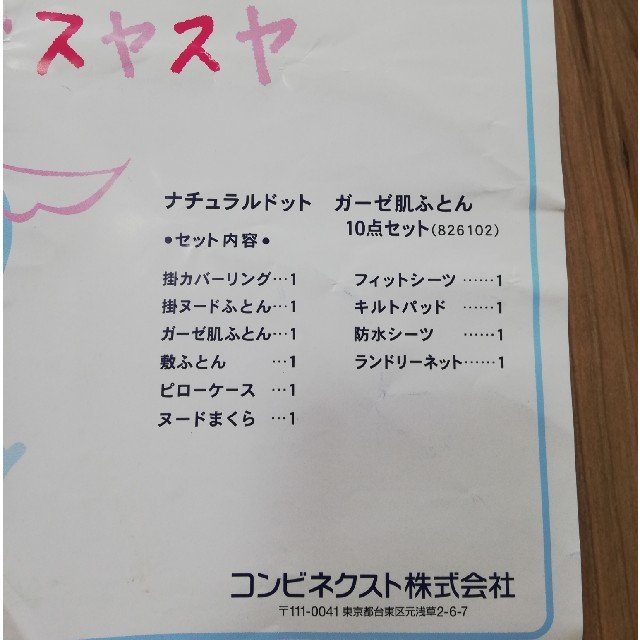 スヤスヤ
ナチュラルドット ガーゼ肌ふとん
10点セット(826102)
●セット内容●
掛カバーリング…1
掛ヌードふとん…1
ガーゼ肌ふとん…1
敷ふとん …1
ピローケース …1
ヌードまくら …1
フィットシーツ ……1
キルトパッド ……1
防水シーツ ……1
ランドリーネット……1
コンビネクスト株式会社
〒111-0041 東京都台東区元浅草2-6-7